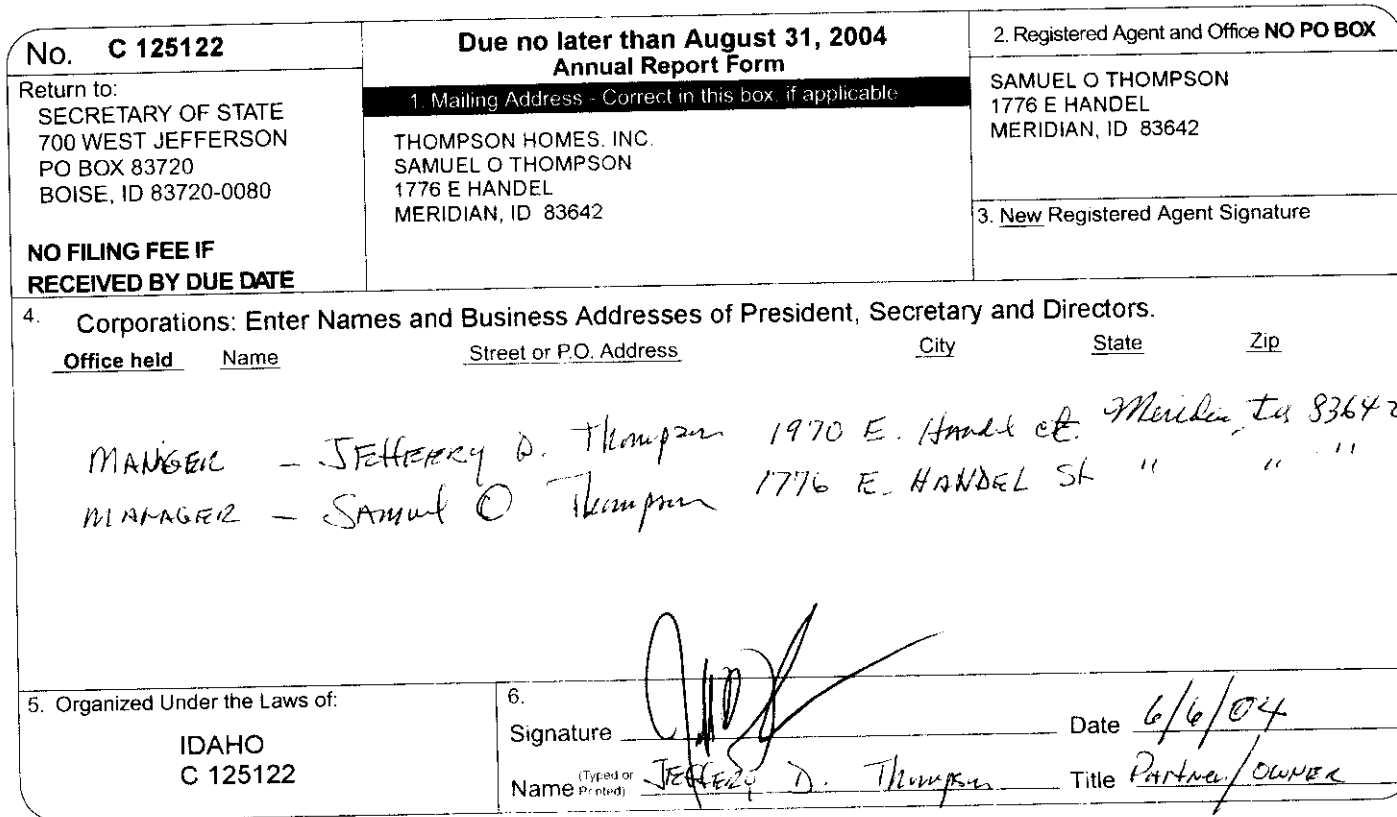 No. C 125122
Return to:
SECRETARY OF STATE
700 WEST JEFFERSON
PO BOX 83720
BOISE, ID 83720-0080
NO FILING FEE IF
RECEIVED BY DUE DATE
Due no later than August 31, 2004
Annual Report Form
1. Mailing Address - Correct in this box, if applicable
THOMPSON HOMES, INC.
SAMUEL O THOMPSON
1776 E HANDEL
MERIDIAN, ID 83642
2. Registered Agent and Office NO PO BOX
SAMUEL O THOMPSON
1776 E HANDEL
MERIDIAN, ID 83642
3. New Registered Agent Signature
4. Corporations: Enter Names and Business Addresses of President, Secretary and Directors.
Office held Name Street or P.O. Address City State Zip
MANAGER - JEFFERRY D. Thompson 1970 E. Handel ct. Meridian, Id 83642
MANAGER - SAMUEL O Thompson 1776 E. HANDEL St " " "
5. Organized Under the Laws of:
IDAHO
C 125122
6.
Signature Date 6/6/04
Name (Typed or Printed) JEFFERY D. Thompson Title Partner/OWNER